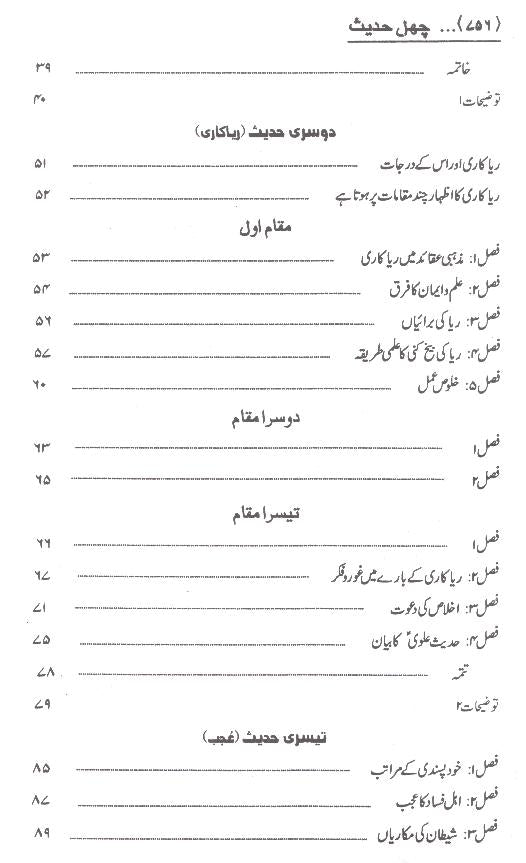 (۷۵۶)... چھل حدیث
خاتمہ ۳۹
توضیحات ۱ ۴۰
دوسری حدیث (ریاکاری)
ریاکاری اور اس کے درجات ۵۱
ریاکاری کا اظہار چند مقامات پر ہوتا ہے ۵۲
مقام اول
فصل ۱: مذہبی عقائد میں ریاکاری ۵۳
فصل ۲: علم و ایمان کا فرق ۵۴
فصل ۳: ریا کی برائیاں ۵۶
فصل ۴: ریا کی بیخ کنی کا علمی طریقہ ۵۷
فصل ۵: خلوص عمل ۶۰
دوسرا مقام
فصل ۱ ۶۳
فصل ۲ ۶۵
تیسرا مقام
فصل ۱ ۶۶
فصل ۲: ریاکاری کے بارے میں غور و فکر ۶۷
فصل ۳: اخلاص کی دعوت ۷۱
فصل ۴: حدیث علویؑ کا بیان ۷۵
تتمہ ۷۸
توضیحات ۲ ۷۹
تیسری حدیث (عُجب)
فصل ۱: خود پسندی کے مراتب ۸۵
فصل ۲: اہل فساد کا عجب ۸۷
فصل ۳: شیطان کی مکاریاں ۸۹